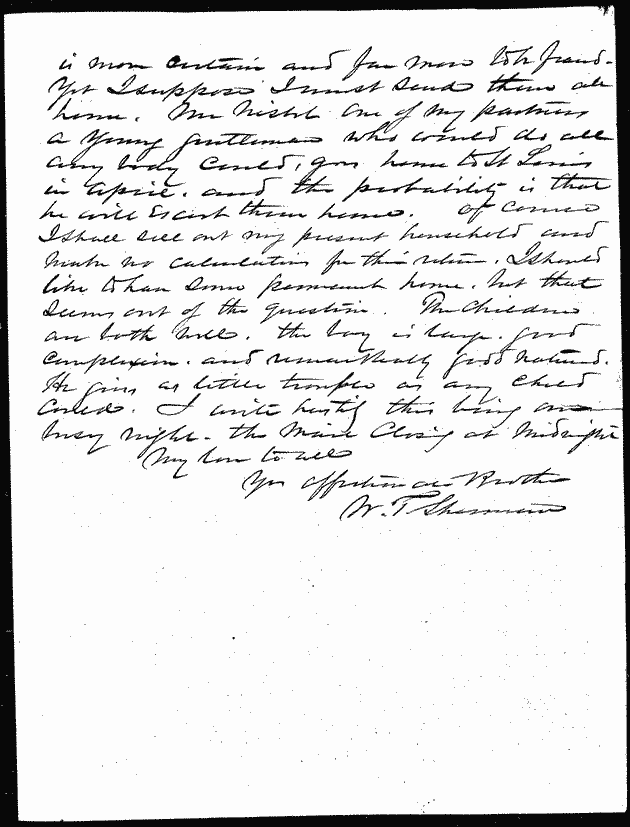 is more certain and far more to be feared.
Yet I suppose I must send them all
home. Mr Nisbet one of my partners
a young gentleman who would do all
any body could, goes home to St Louis
in April. and the probability is that
he will escort them home. Of course
I shall sell out my present household and
make no calculation for their return. I should
like to have some permanent home. but that
seems out of the question. The Children
are both well. the boy is large. good
complexion. and remarkably good natured.
He gives as little trouble as any child
could. I write hastily this being our
busy night. the Mail Closing at Midnight
My love to all
Yr affectionate Brother
W. T. Sherman